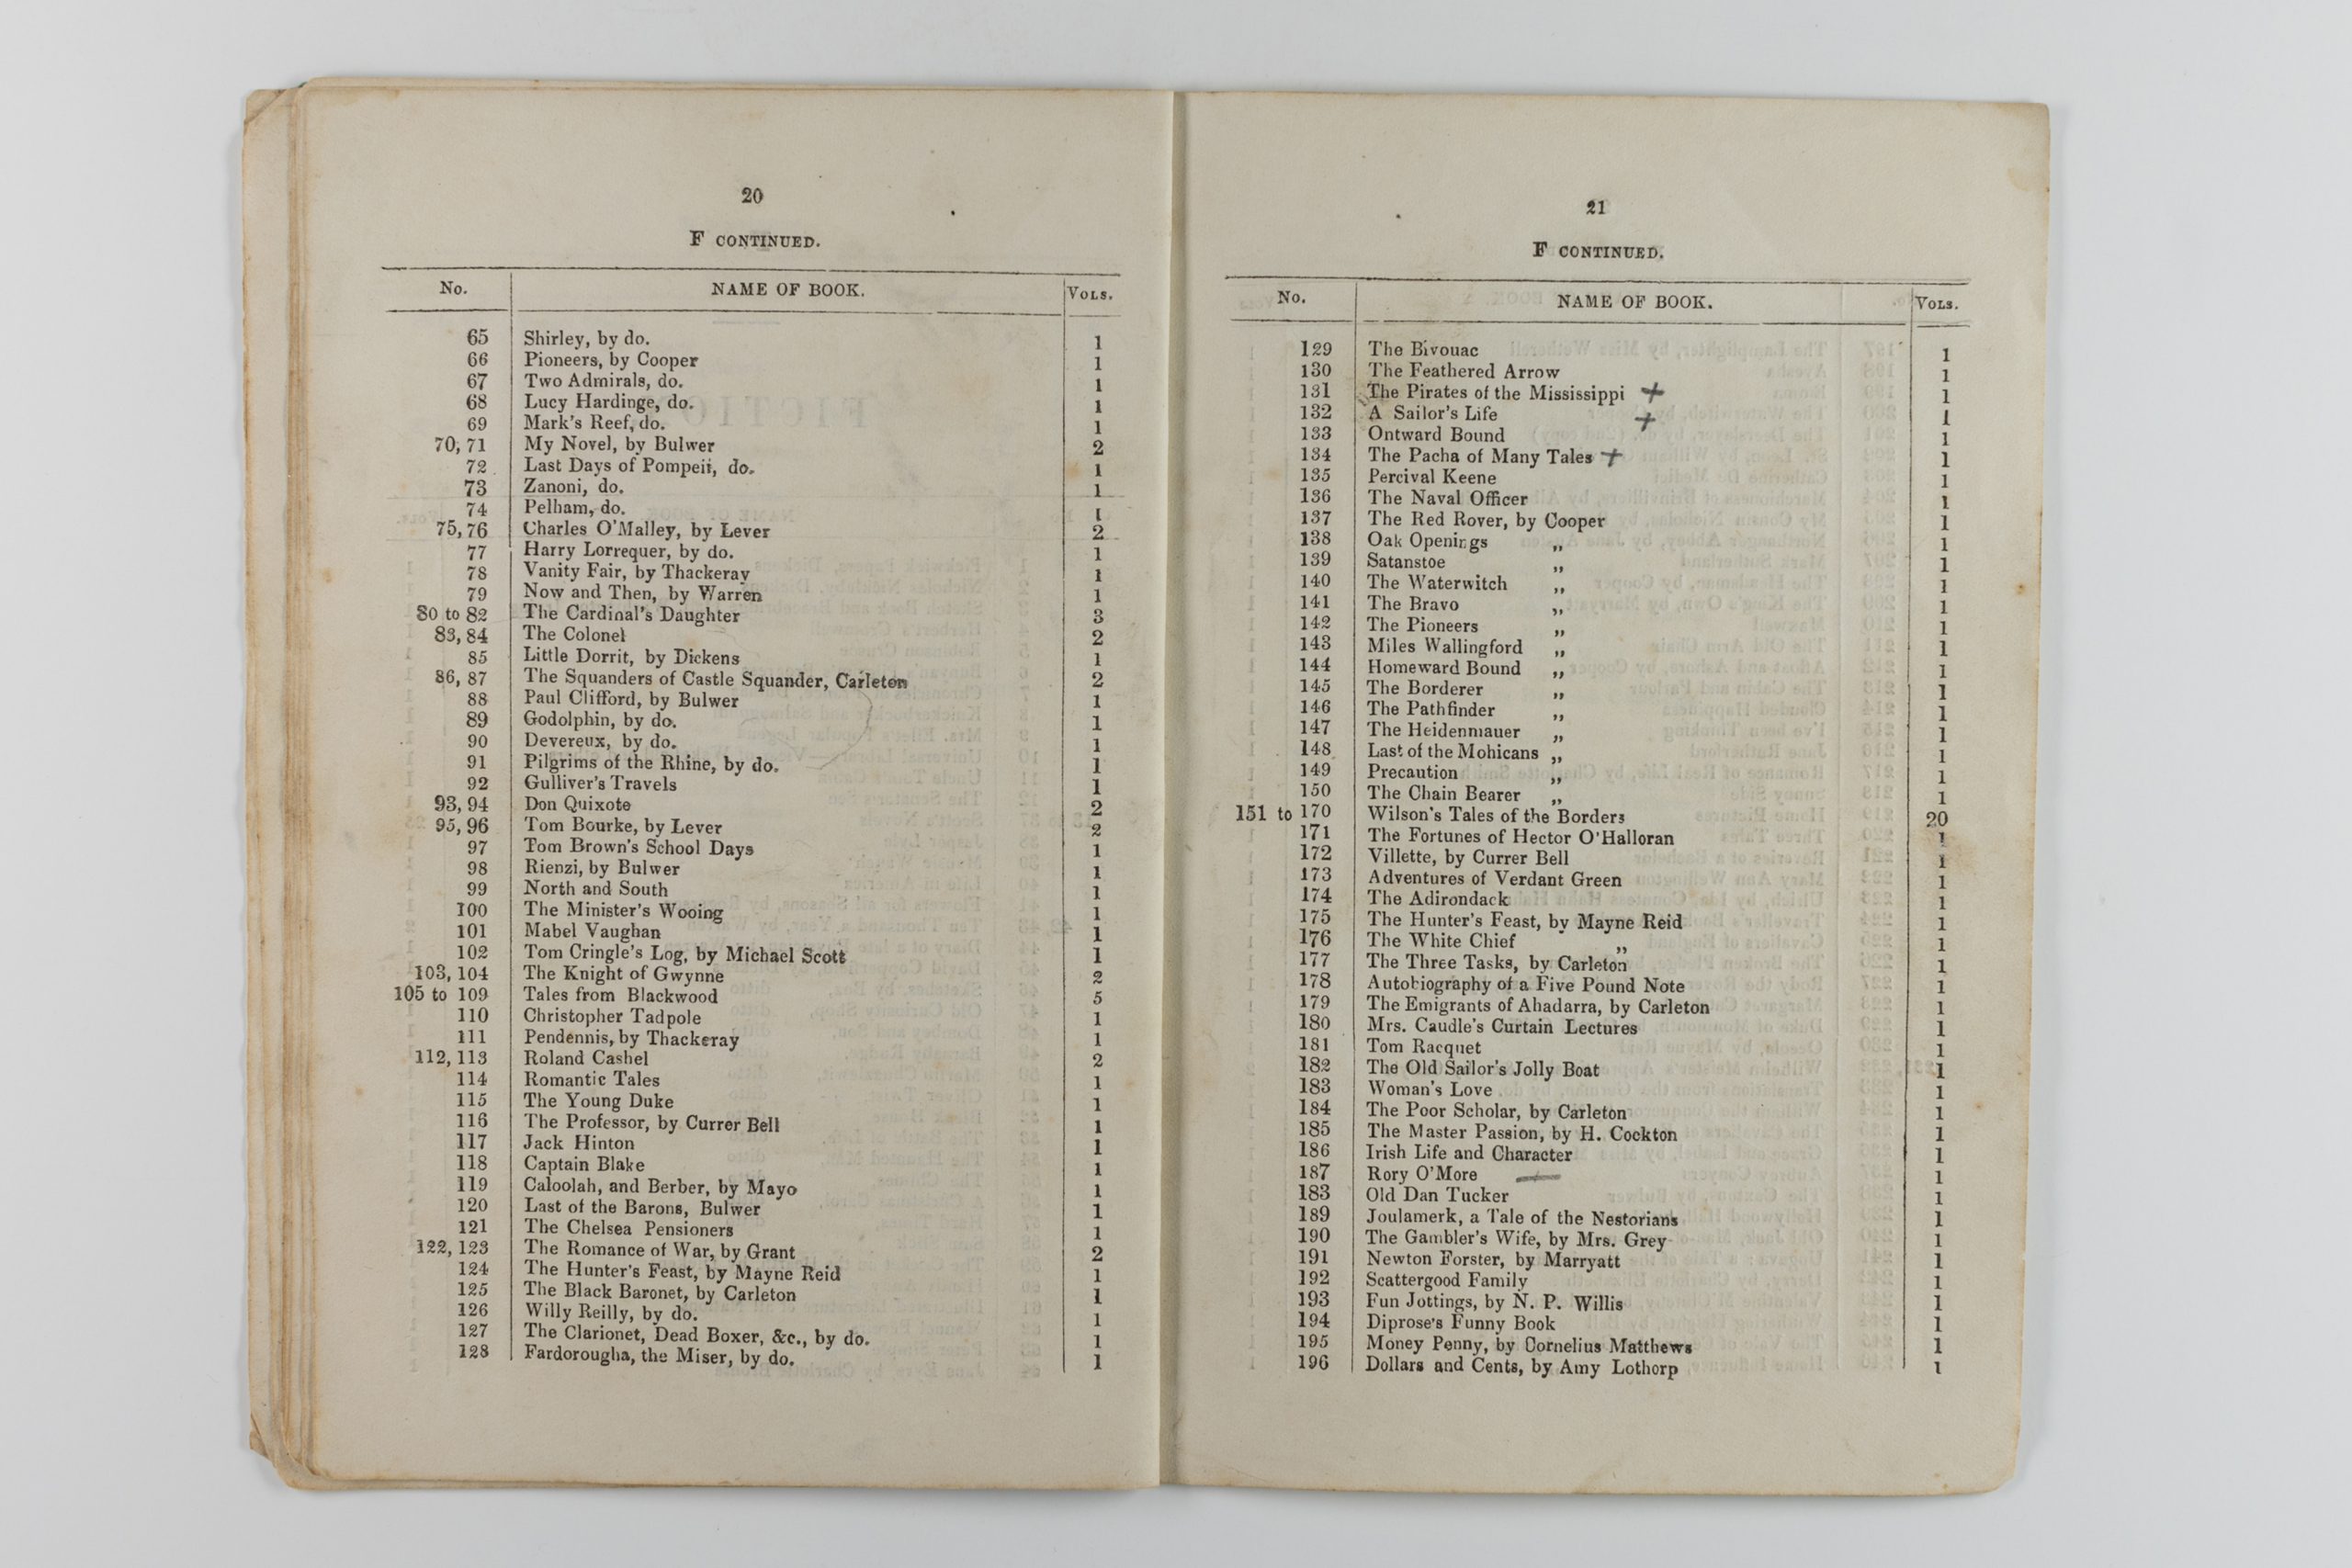 20
F CONTINUED.
No. NAME OF BOOK. VOLS.
65 Shirley, by do. 1
66 Pioneers, by Cooper 1
67 Two Admirals, do. 1
68 Lucy Hardinge, do. 1
69 Mark's Reef, do. 1
70, 71 My Novel, by Bulwer 2
72 Last Days of Pompeii, do. 1
73 Zanoni, do. 1
74 Pelham, do. 1
75, 76 Charles O'Malley, by Lever 2
77 Harry Lorrequer, by do. 1
78 Vanity Fair, by Thackeray 1
79 Now and Then, by Warren 1
80 to 82 The Cardinal's Daughter 3
83, 84 The Colonel 2
85 Little Dorrit, by Dickens 1
86, 87 The Squanders of Castle Squander, Carleton 2
88 Paul Clifford, by Bulwer 1
89 Godolphin, by do. 1
90 Devereux, by do. 1
91 Pilgrims of the Rhine, by do. 1
92 Gulliver's Travels 1
93, 94 Don Quixote 2
95, 96 Tom Bourke, by Lever 2
97 Tom Brown's School Days 1
98 Rienzi, by Bulwer 1
99 North and South 1
100 The Minister's Wooing 1
101 Mabel Vaughan 1
102 Tom Cringle's Log, by Michael Scott 1
103, 104 The Knight of Gwynne 2
105 to 109 Tales from Blackwood 5
110 Christopher Tadpole 1
111 Pendennis, by Thackeray 1
112, 113 Roland Cashel 2
114 Romantic Tales 1
115 The Young Duke 1
116 The Professor, by Currer Bell 1
117 Jack Hinton 1
118 Captain Blake 1
119 Caloolah, and Berber, by Mayo 1
120 Last of the Barons, Bulwer 1
121 The Chelsea Pensioners 1
122, 123 The Romance of War, by Grant 2
124 The Hunter's Feast, by Mayne Reid 1
125 The Black Baronet, by Carleton 1
126 Willy Reilly, by do. 1
127 The Clarionet, Dead Boxer, &c., by do. 1
128 Fardorougha, the Miser, by do. 1
21
F CONTINUED.
No. NAME OF BOOK. VOLS.
129 The Bivouac 1
130 The Feathered Arrow 1
131 The Pirates of the Mississippi + 1
132 A Sailor's Life + 1
133 Ontward Bound 1
134 The Pacha of Many Tales + 1
135 Percival Keene 1
136 The Naval Officer 1
137 The Red Rover, by Cooper 1
138 Oak Openings „ 1
139 Satanstoe „ 1
140 The Waterwitch „ 1
141 The Bravo „ 1
142 The Pioneers „ 1
143 Miles Wallingford „ 1
144 Homeward Bound „ 1
145 The Borderer „ 1
146 The Pathfinder „ 1
147 The Heidenmauer „ 1
148 Last of the Mohicans „ 1
149 Precaution „ 1
150 The Chain Bearer „ 1
151 to 170 Wilson's Tales of the Borders 20
171 The Fortunes of Hector O'Halloran 1
172 Villette, by Currer Bell 1
173 Adventures of Verdant Green 1
174 The Adirondack 1
175 The Hunter's Feast, by Mayne Reid 1
176 The White Chief „ 1
177 The Three Tasks, by Carleton 1
178 Autobiography of a Five Pound Note 1
179 The Emigrants of Ahadarra, by Carleton 1
180 Mrs. Caudle's Curtain Lectures 1
181 Tom Racquet 1
182 The Old Sailor's Jolly Boat 1
183 Woman's Love 1
184 The Poor Scholar, by Carleton 1
185 The Master Passion, by H. Cockton 1
186 Irish Life and Character 1
187 Rory O'More 1
183 Old Dan Tucker 1
189 Joulamerk, a Tale of the Nestorians 1
190 The Gambler's Wife, by Mrs. Grey 1
191 Newton Forster, by Marryatt 1
192 Scattergood Family 1
193 Fun Jottings, by N. P. Willis 1
194 Diprose's Funny Book 1
195 Money Penny, by Cornelius Matthews 1
196 Dollars and Cents, by Amy Lothorp 1